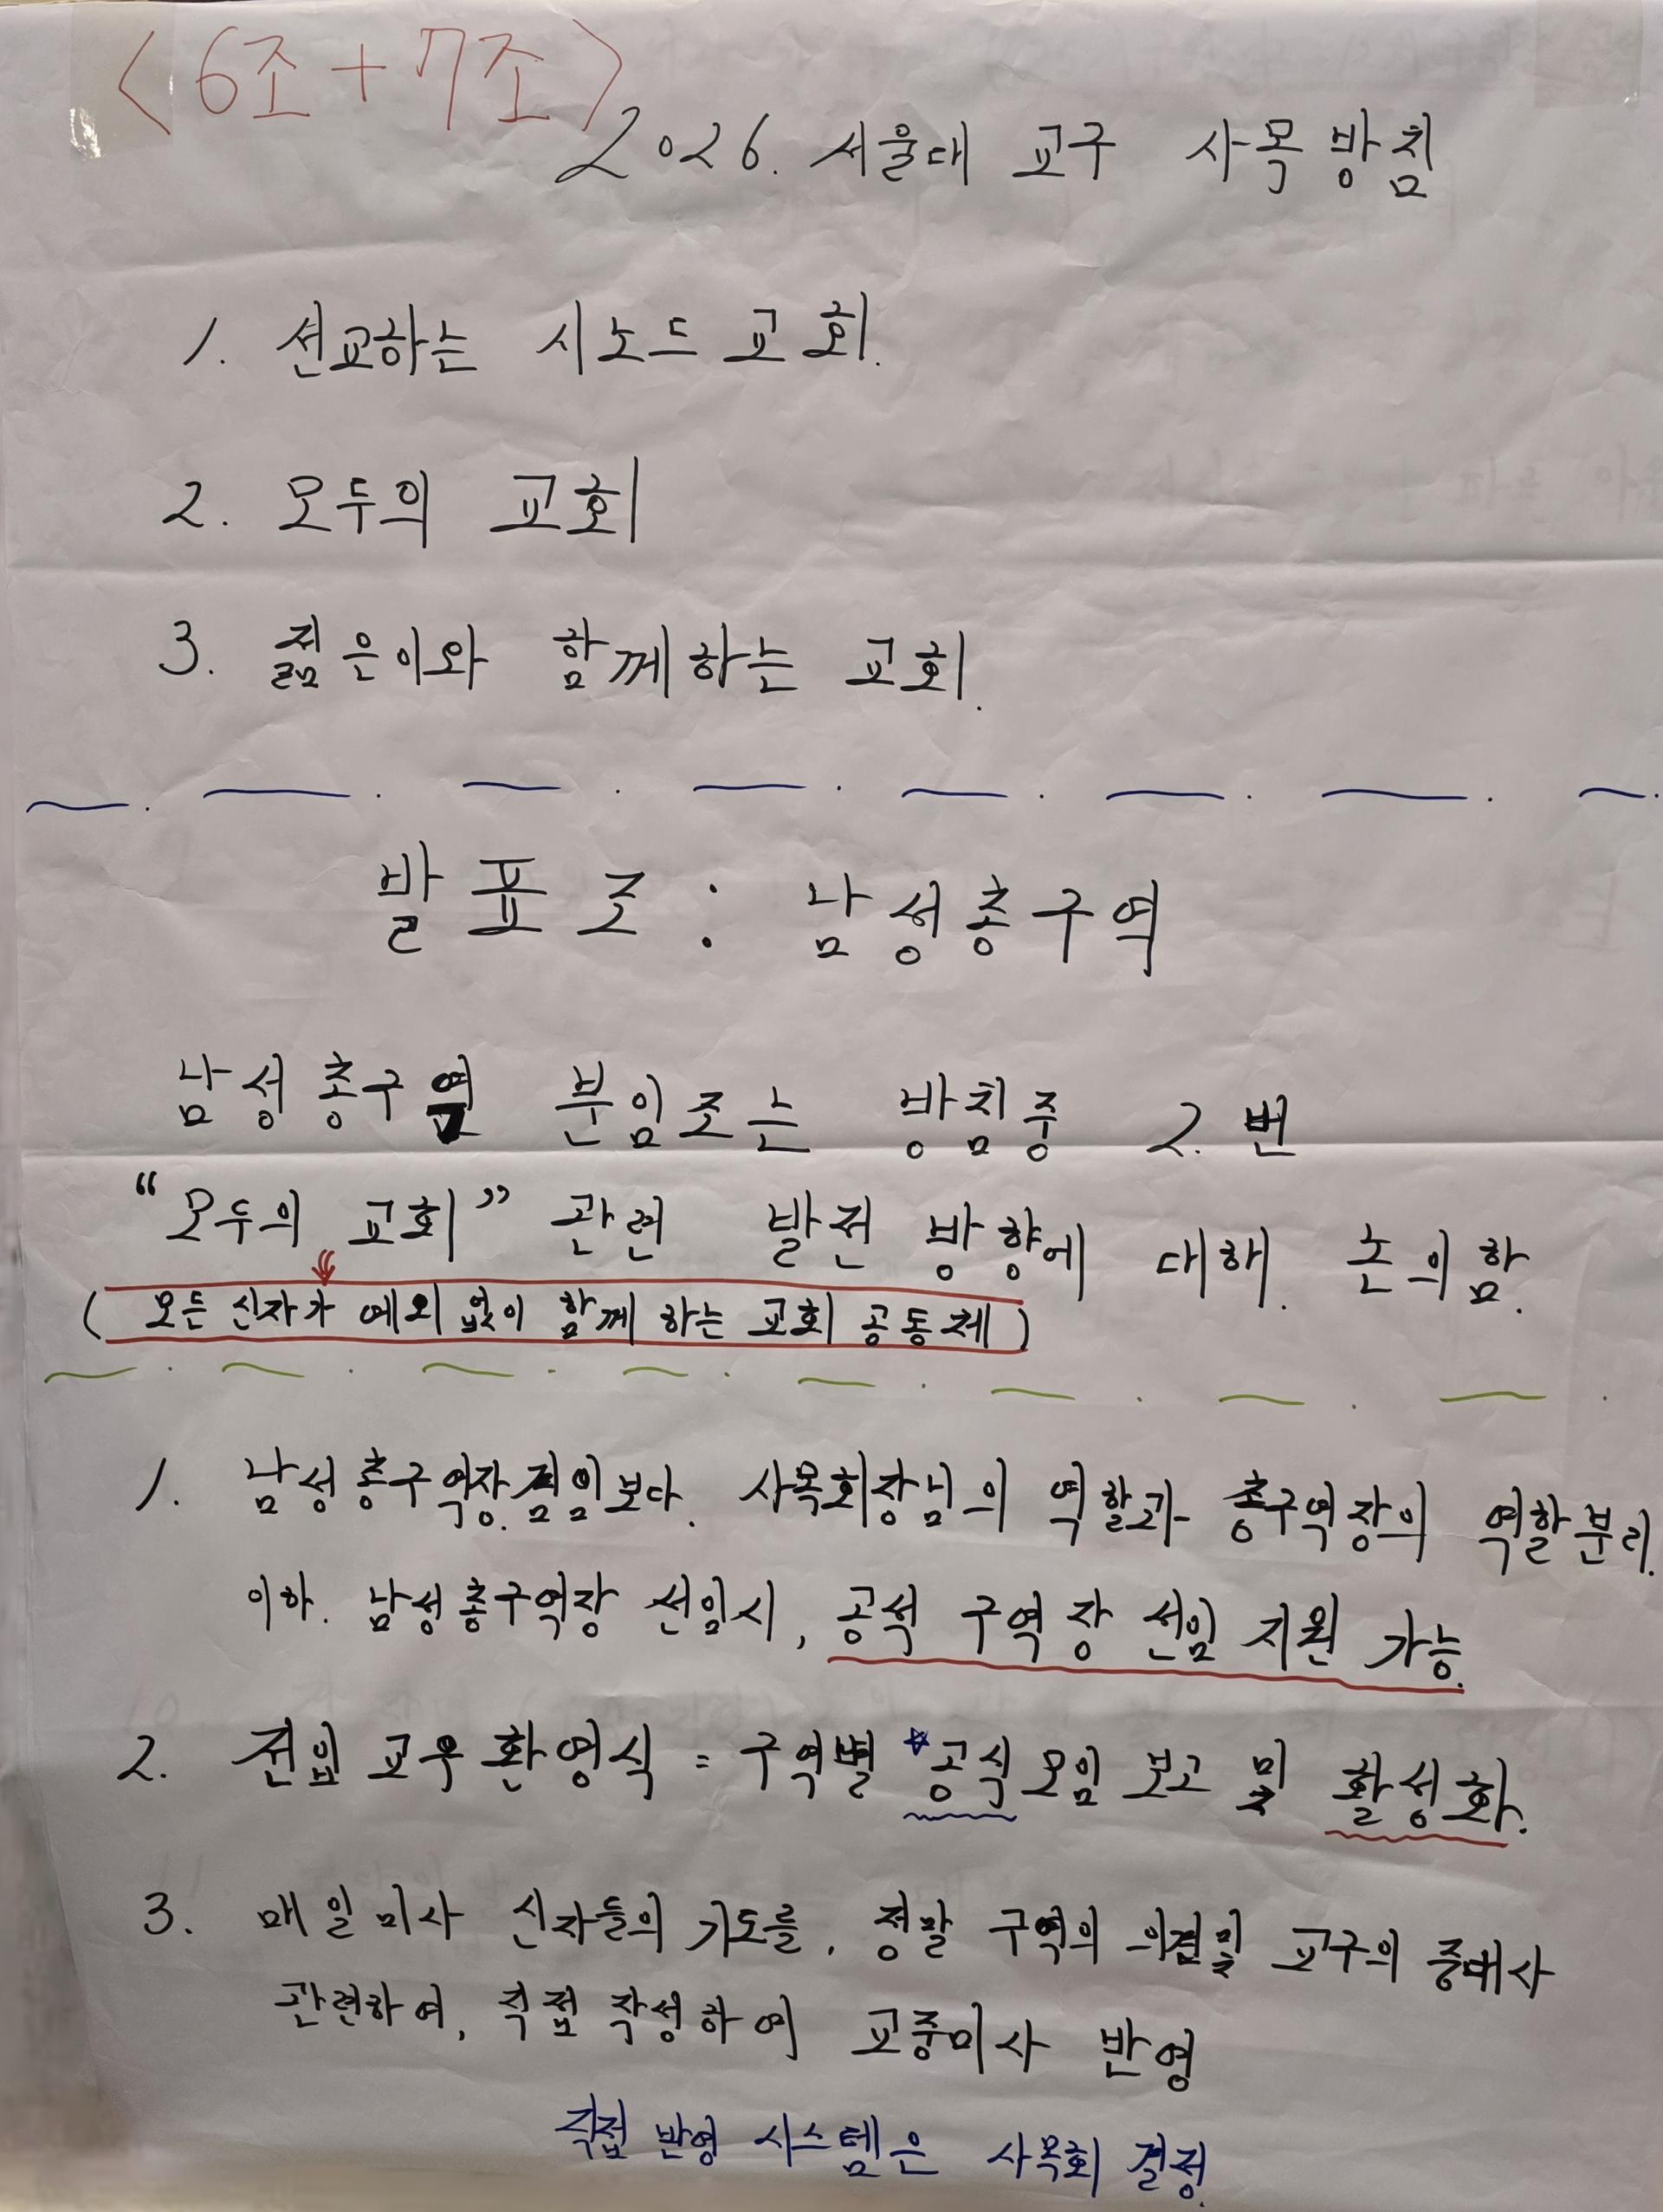 <6조+7조>
2026. 서울대 교구 사목 방침
1. 선교하는 시노드 교회.
2. 모두의 교회
3. 젊은이와 함께하는 교회.
발표조 : 남성총구역
남성총구역 분임조는 방침중 2. 번
“모두의 교회” 관련 발전 방향에 대해. 논의함.
( 모든 신자가 예외 없이 함께 하는 교회 공동체 )
1. 남성총구역장. 겸임보다. 사목회장님의 역할과 총구역장의 역할분리.
이하. 남성총구역장 선임시, 공석 구역장 선임 지원 가능.
2. 전입 교우 환영식 = 구역별 *공식 모임 보고 및 활성화.
3. 매일미사 신자들의 기도를, 정말 구역의 의견 및 교구의 중대사
관련하여, 직접 작성하여 교중미사 반영
직접 반영 시스템은 사목회 결정.